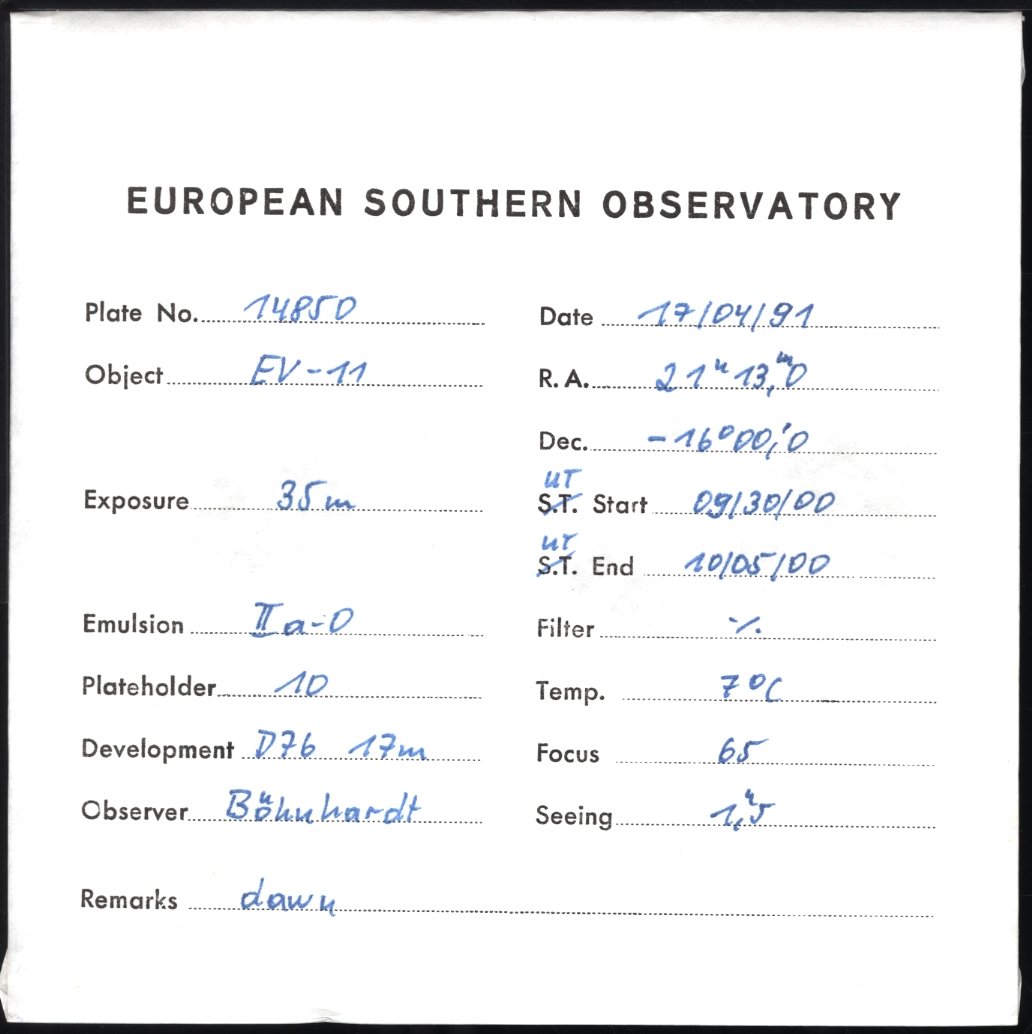 EUROPEAN SOUTHERN OBSERVATORY
Plate No. 14850 Date 17/04/91
Object EV-11 R.A. 21ʰ13,ᵐ0
Dec. -16°00,'0
UT
Exposure 35m S.T. Start 09/30/00
UT
S.T. End 10/05/00
Emulsion IIa-O Filter ·/.
Plateholder 10 Temp. 7°C
Development D76 17m Focus 65
Observer Böhnhardt Seeing 1,"5
Remarks dawn